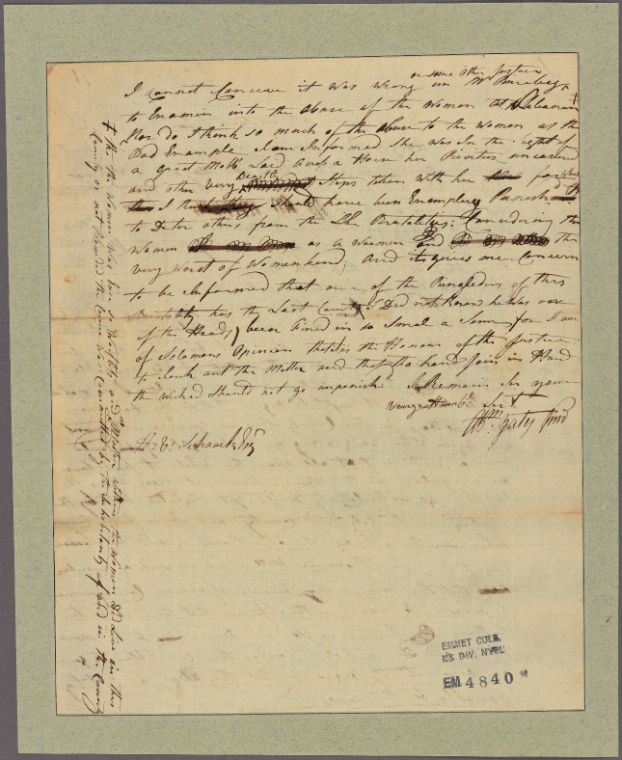 or some other Justice
I cannot Conceive it was wrong in Mr
to Examin into the abuse of the Woman at Lebanon ‡
Nor do I think so much of the abuse to the Woman as the
Bad Example I am Informed she was In the sight of
a great Mob Laid a Horse her uncovered
Beastly
and other very Steps taken with her for which
I should have been Exemplery Punished
to Deter others from the Like Brutalitys: Concidering the
Woman as a Woman and the
very worst of Womankind; and it gives me Concern
to be Informed that one of the Ringleders of this
Brutality has the Last Court (I Did not Know he was one
of the Heads) been fined in so Small a Summ, for I am
of Solomons Opinion that its the Honour of the Justice
to Search out the Matter and that tho hand Join in Hand
the wicked should not go unpunished I Remain Sir your
very Humble Sert
Abm Yates Junr
H. V. Schaack Esqr
‡ the Woman was and Master the Woman Did Live in this
County or not the Crime was Committed by the Inhabitants of and in the County
EMMET COLL.
MSS DIV. NYPL
EM 4840